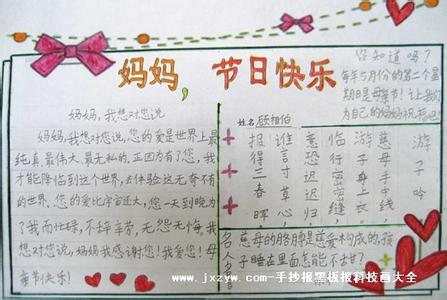 妈妈，节日快乐
妈妈，我想对您说
妈妈，我想对您说，您的爱是世界上最
纯真、最伟大、最无私的，正因为有了您，我
才能降临到这个世界，去体验这无奇不有
的世界。您的爱比宇宙还大，您一天到晚为
了我而忙碌，不辞辛苦，无怨无悔，我
想对您说，妈妈我感谢您！我爱您！母
亲节快乐！
知道吗？
每年5月份的第二个星
期日是母亲节！让我们
为自己的妈妈祝福吧！
姓名 顾相伯
游子吟
慈母手中线
游子身上衣
临行密密缝
意恐迟迟归
谁言寸草心
报得三春晖
慈母的胳膊是慈爱构成的，孩
子睡在里面怎能不甜？
www.jxzyw.com-手抄报黑板报科技画大全